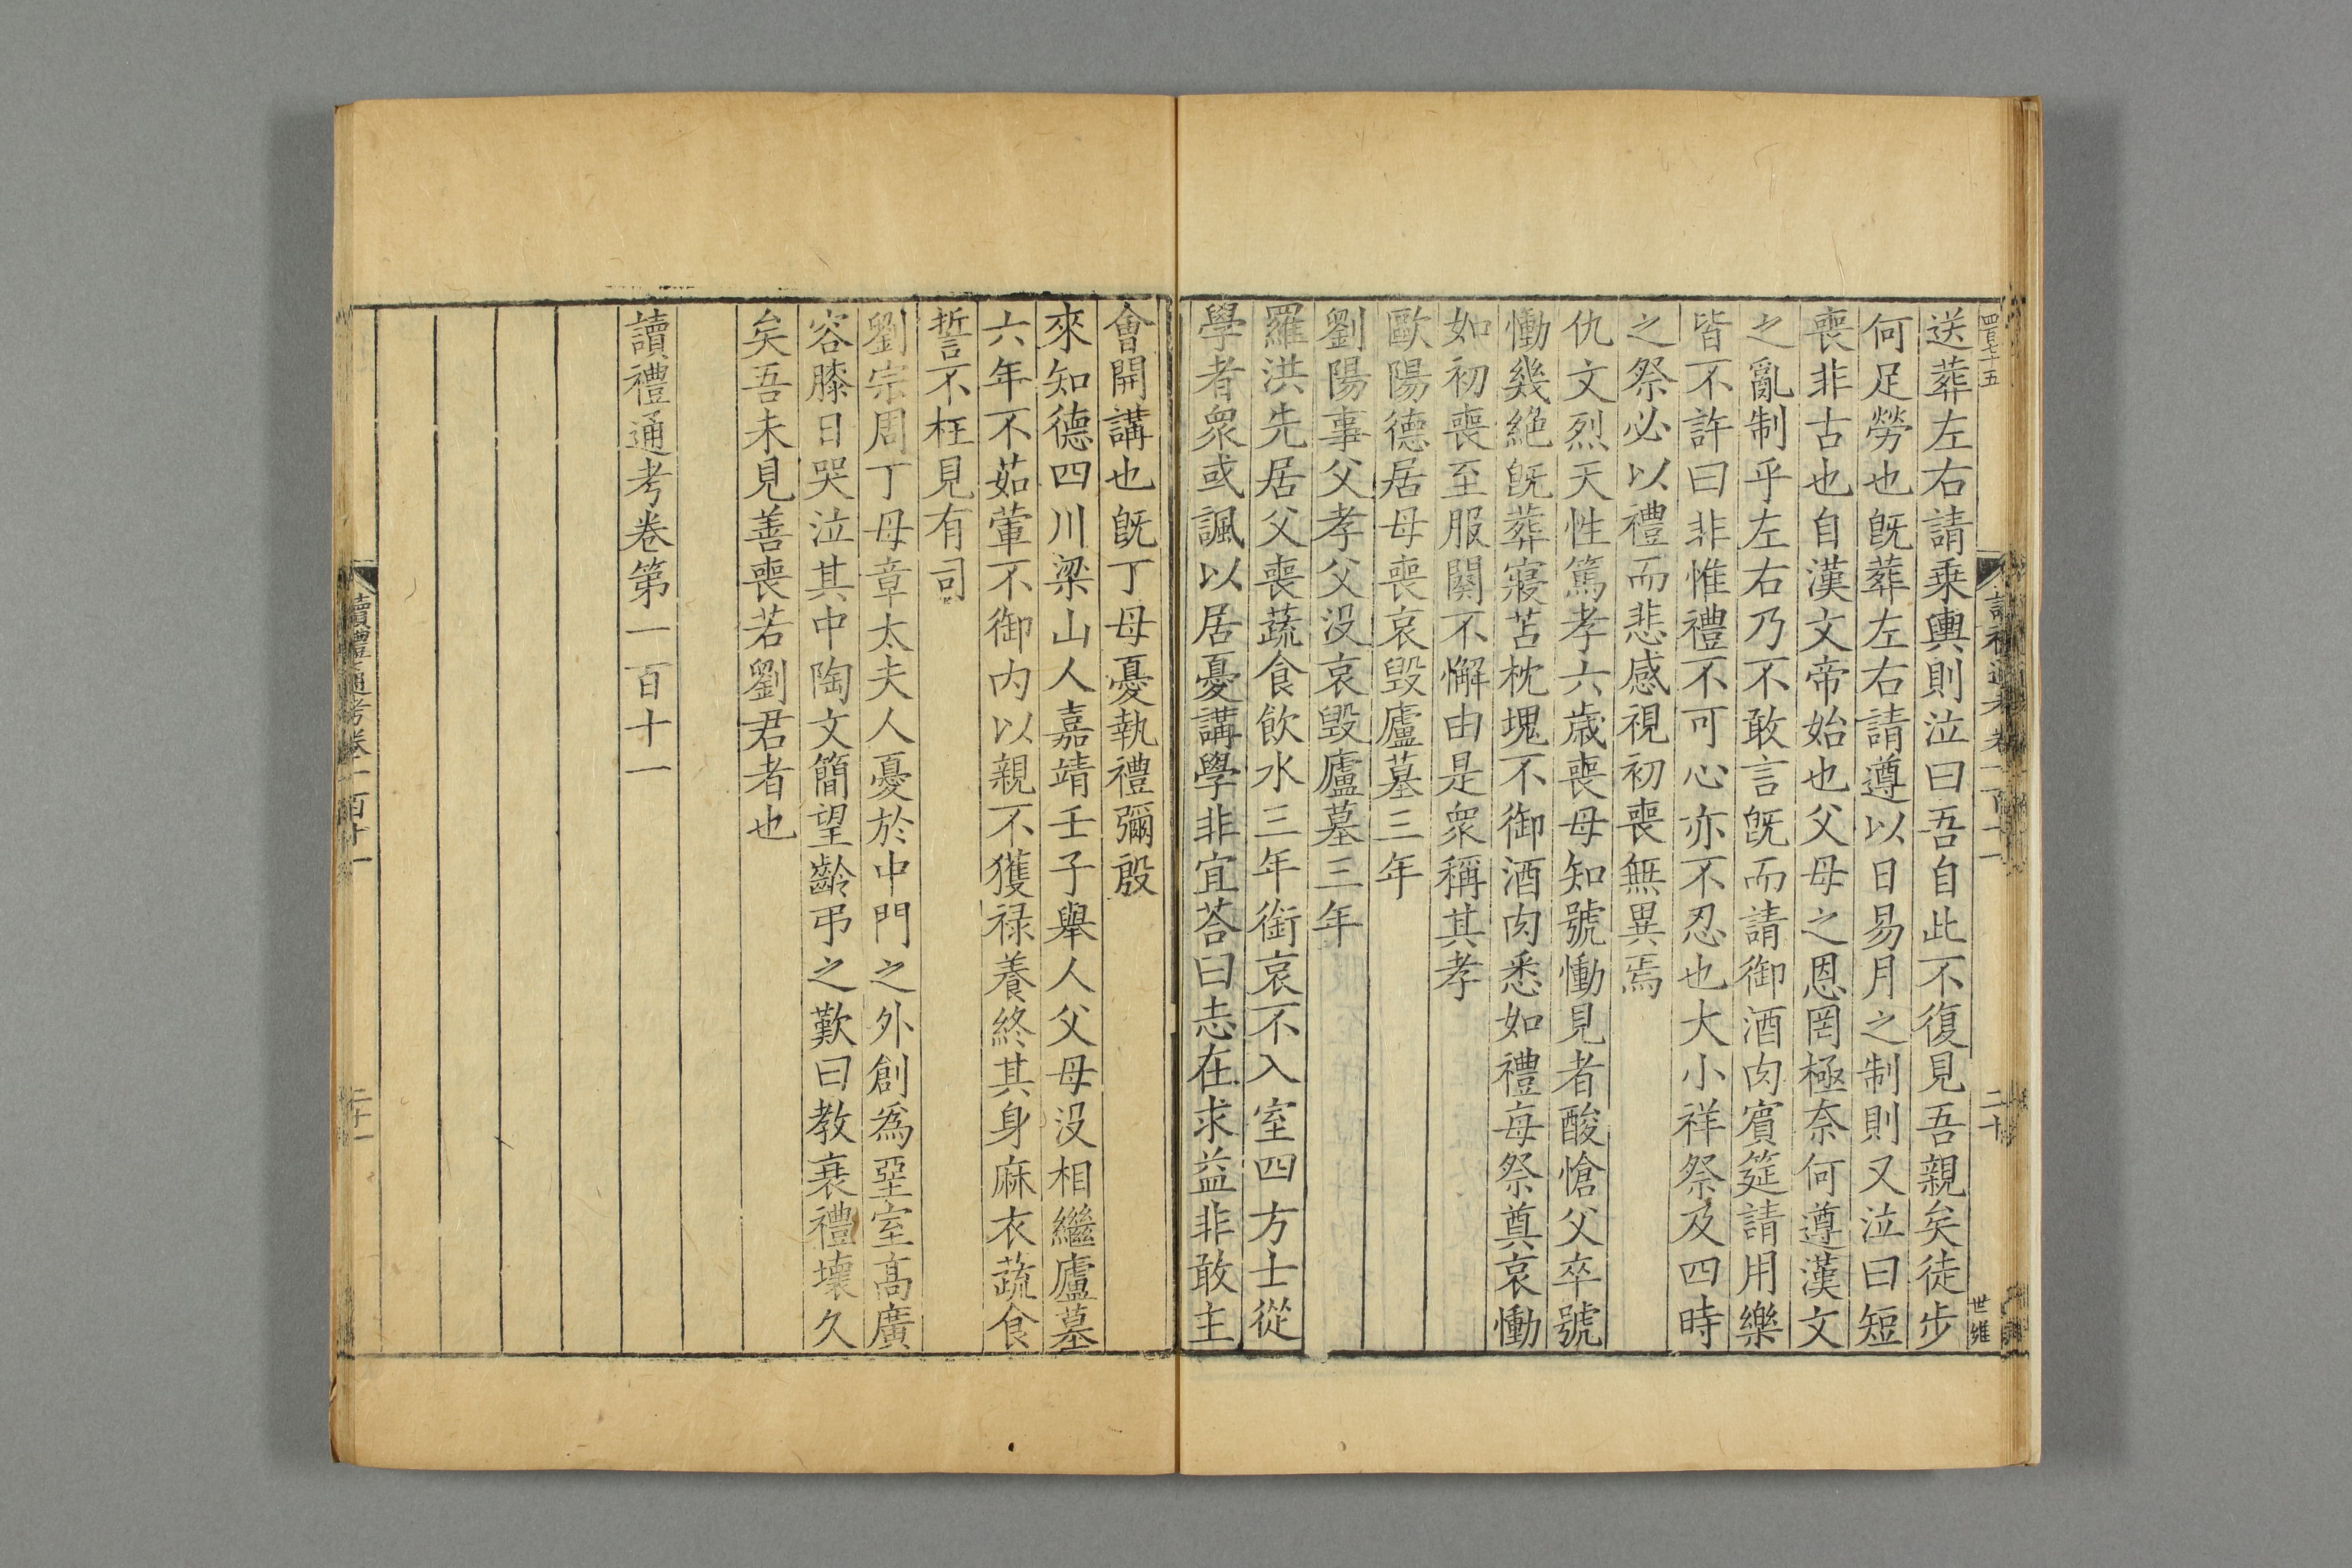 四百七十五
讀禮通考卷一百十一
二十
世雍
送葬左右請乗輿則泣曰吾自此不復見吾親矣徒步
何足勞也旣葬左右請遵以日易月之制則又泣曰短
喪非古也自漢文帝始也父母之恩罔極奈何遵漢文
之亂制乎左右乃不敢言旣而請御酒肉賓筵請用樂
皆不許曰非惟禮不可心亦不忍也大小祥祭及四時
之祭必以禮而悲感視初喪無異焉
仇文烈天性篤孝六歲喪母知號慟見者酸愴父卒號
慟幾絶旣葬寢苫枕塊不御酒肉悉如禮每祭奠哀慟
如初喪至服闋不懈由是衆稱其孝
歐陽德居母喪哀毀廬墓三年
劉陽事父孝父没哀毀廬墓三年
羅洪先居父喪蔬食飲水三年銜哀不入室四方士從
學者衆或諷以居憂講學非宜荅曰志在求益非敢主
會開講也旣丁母憂執禮彌殷
來知德四川梁山人嘉靖壬子舉人父母没相繼廬墓
六年不茹葷不御内以親不獲禄養終其身麻衣蔬食
誓不枉見有司
劉宗周丁母章太夫人憂於中門之外創爲堊室高廣
容膝日哭泣其中陶文簡望齡弔之歎曰教衰禮壞久
矣吾未見善喪若劉君者也
讀禮通考卷第一百十一
讀禮通考卷一百十一
二十一